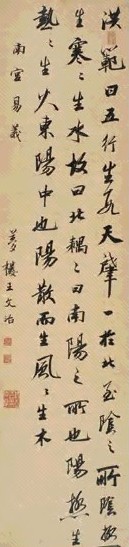 洪範曰五行生數天肇一於北至陰之所陰極
生寒〻生水故曰北耦之曰南陽之所也陽極生
熱〻生火東陽中也陽散而生風〻生木
南宮易義
夢樓王文治